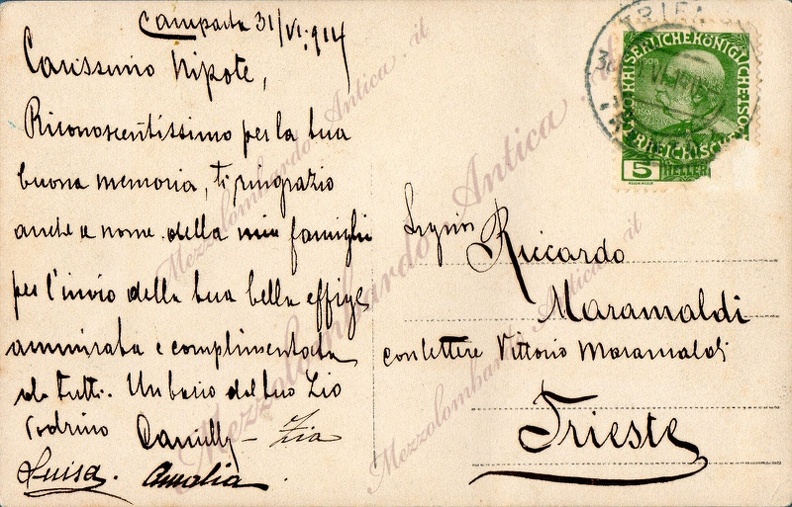 Camparta 31/VI. 914
Carissimo Nipote,
Riconoscentissimo per la tua
buona memoria, ti ringrazio
anche a nome della mia famiglia
per l'invio della tua bella effige
ammirata e complimentata
da tutti. Un bacio dal tuo Zio
Camillo – Zia
Luisa. Amalia.
KAISERLICHE KÖNIGLICHE
5
HELLER
Signor
Riccardo
Maramaldi
confettiere Vittorio Maramaldi
Trieste
Mezzolombardo Antica.it
Mezzolombardo Antica.it
Mezzolombardo Antica.it